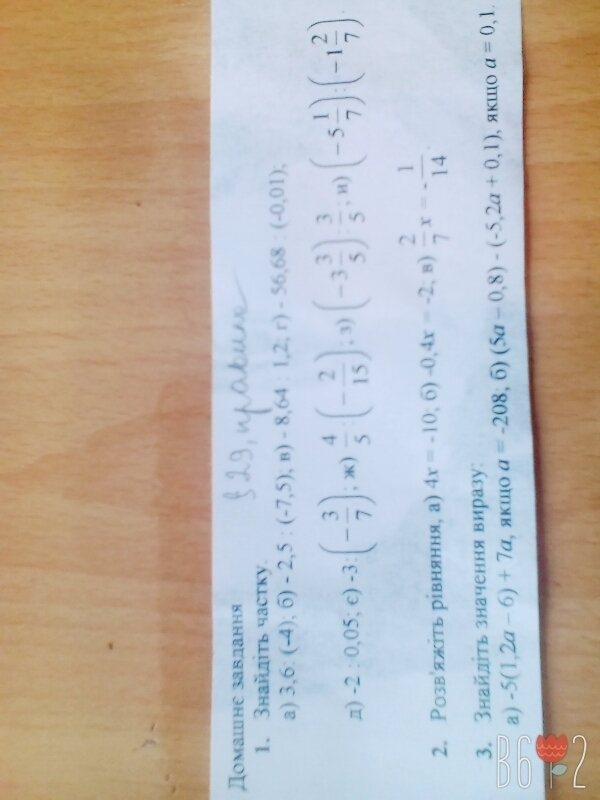 Домашнє завдання § 29, правила
1. Знайдіть частку.
а) 3,6: (-4); б) - 2,5 : (-7,5); в) - 8,64 : 1,2; г) - 56,68 : (-0,01);
д) -2 : 0,05; є) -3:(-3/7); ж) 4/5:(-2/15); з) (-3 3/5):3/5; и) (-5 1/7):(-1 2/7).
2. Розв'яжіть рівняння, а) 4x = -10; б) -0,4x = -2; в) 2/7 x = -1/14.
3. Знайдіть значення виразу:
а) -5(1,2a – 6) + 7a, якщо a = -208; б) (5a – 0,8) - (-5,2a + 0,1), якщо a = 0,1.
В612